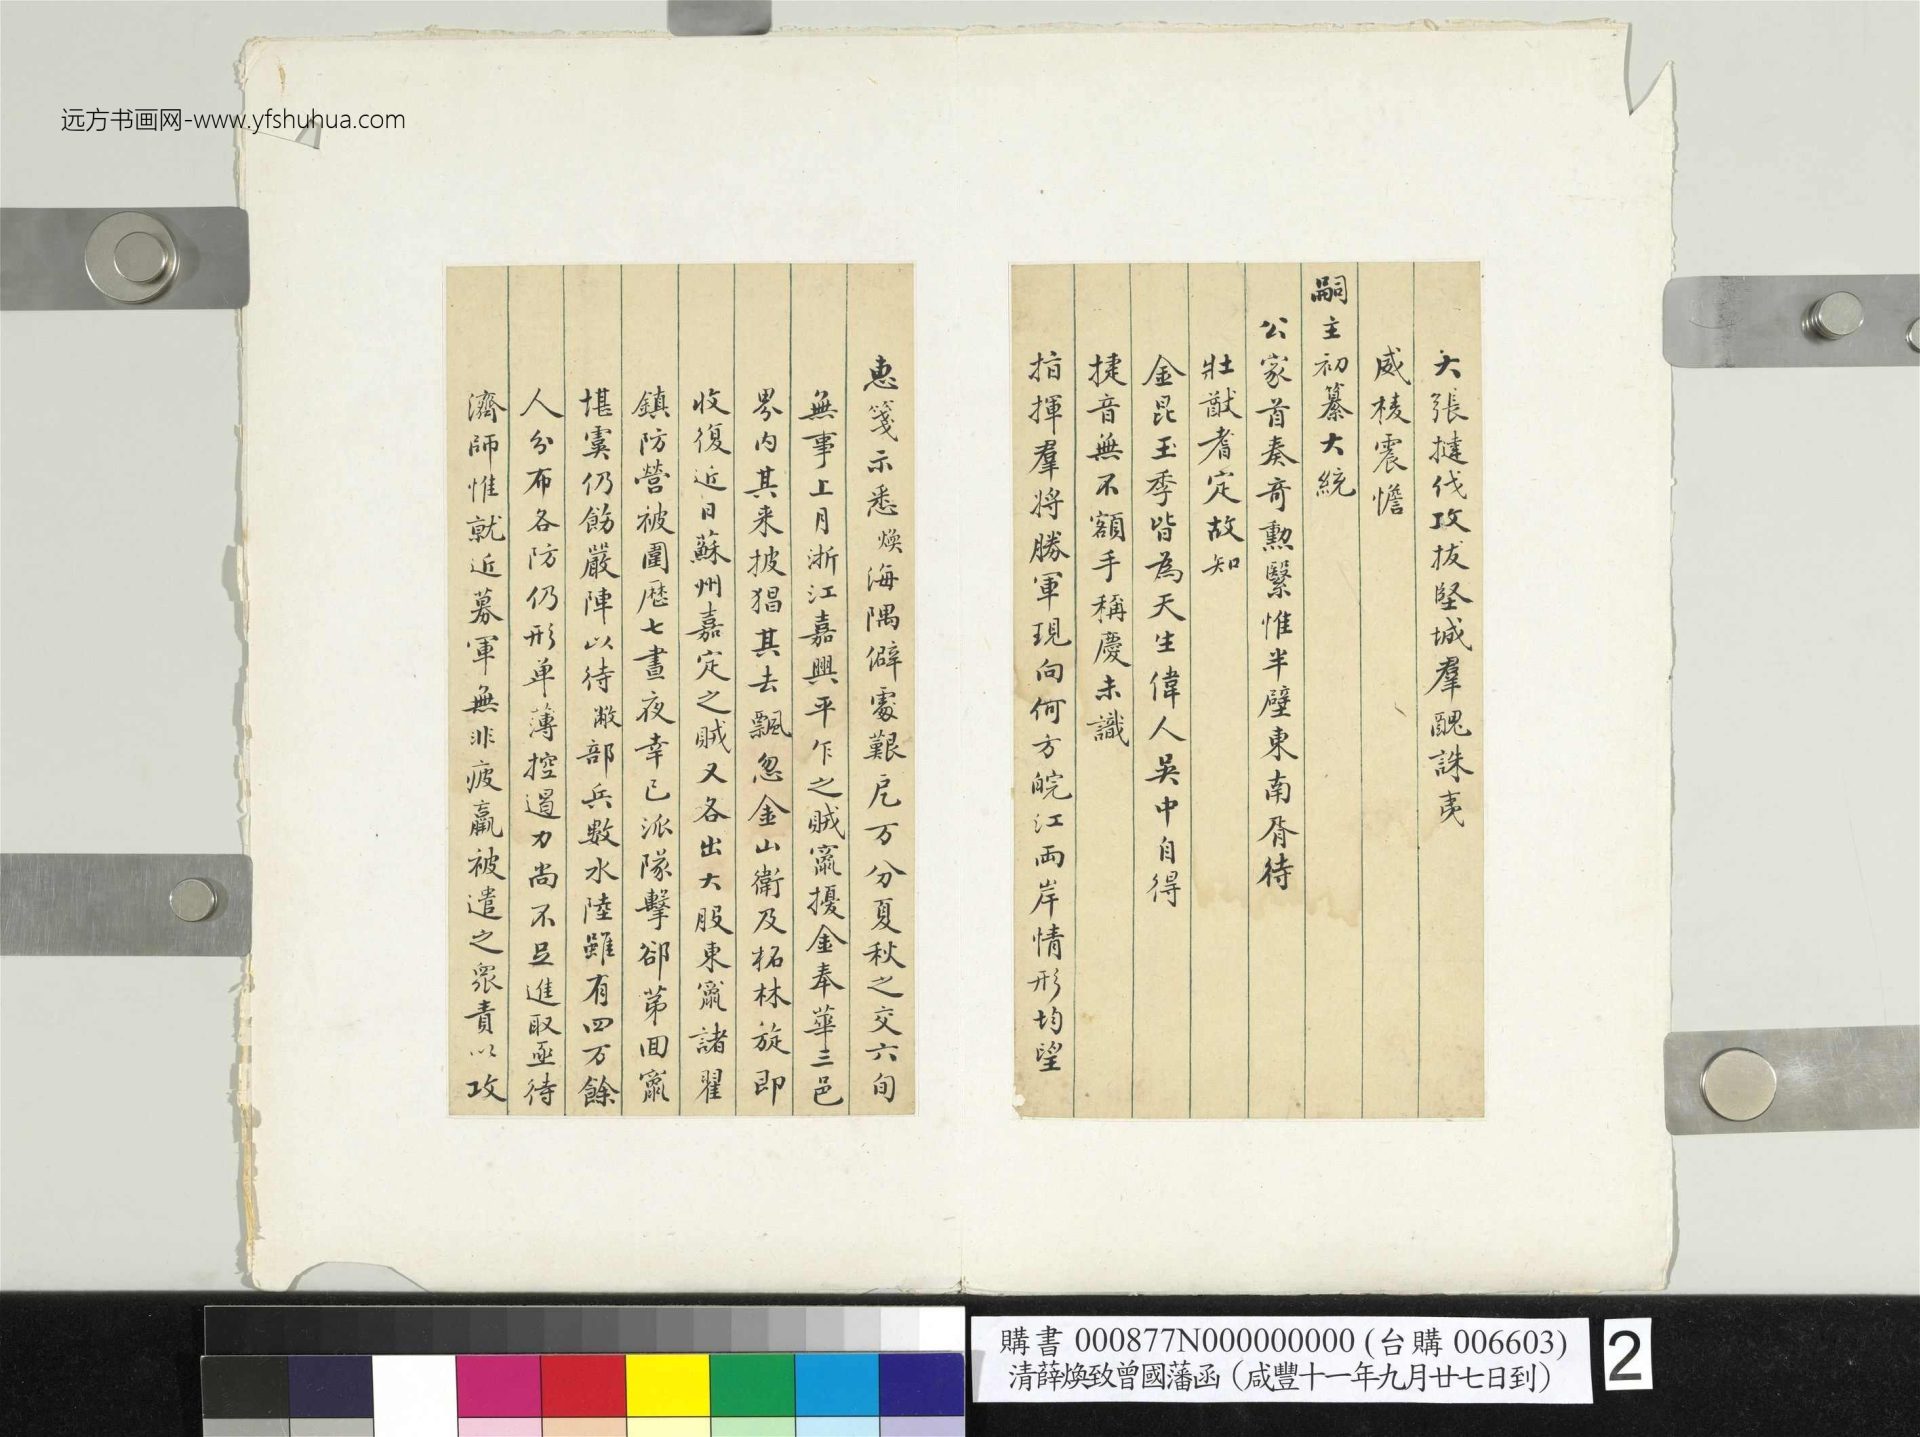 远方书画网-www.yfshuhua.com
大張撻伐攻拔堅城羣醜誅夷
威棱震憺
嗣主初纂大統
公家首奏奇勲緊惟半壁東南胥待
壯猷耆定故知
金昆玉季皆為天生偉人吳中自得
捷音無不額手稱慶未識
指揮羣將勝軍現向何方皖江兩岸情形均望
惠箋示悉煥海隅僻處艱戹万分夏秋之交六旬
無事上月浙江嘉興平乍之賊竄擾金奉華三邑
界内其来披猖其去飄忽金山衛及柘林旋即
收復近日蘇州嘉定之賊又各出大股東竄諸翟
鎮防營被圍歷七晝夜幸已派隊擊卻苐回竄
堪虞仍飭嚴陣以待敝部兵數水陸雖有四万餘
人分布各防仍形单薄控遏力尚不足進取亟待
濟師惟就近募軍無非疲羸被遣之衆責以攻
購書 000877N000000000 (台購 006603)
清薛煥致曾國藩函（咸豐十一年九月廿七日到）
2